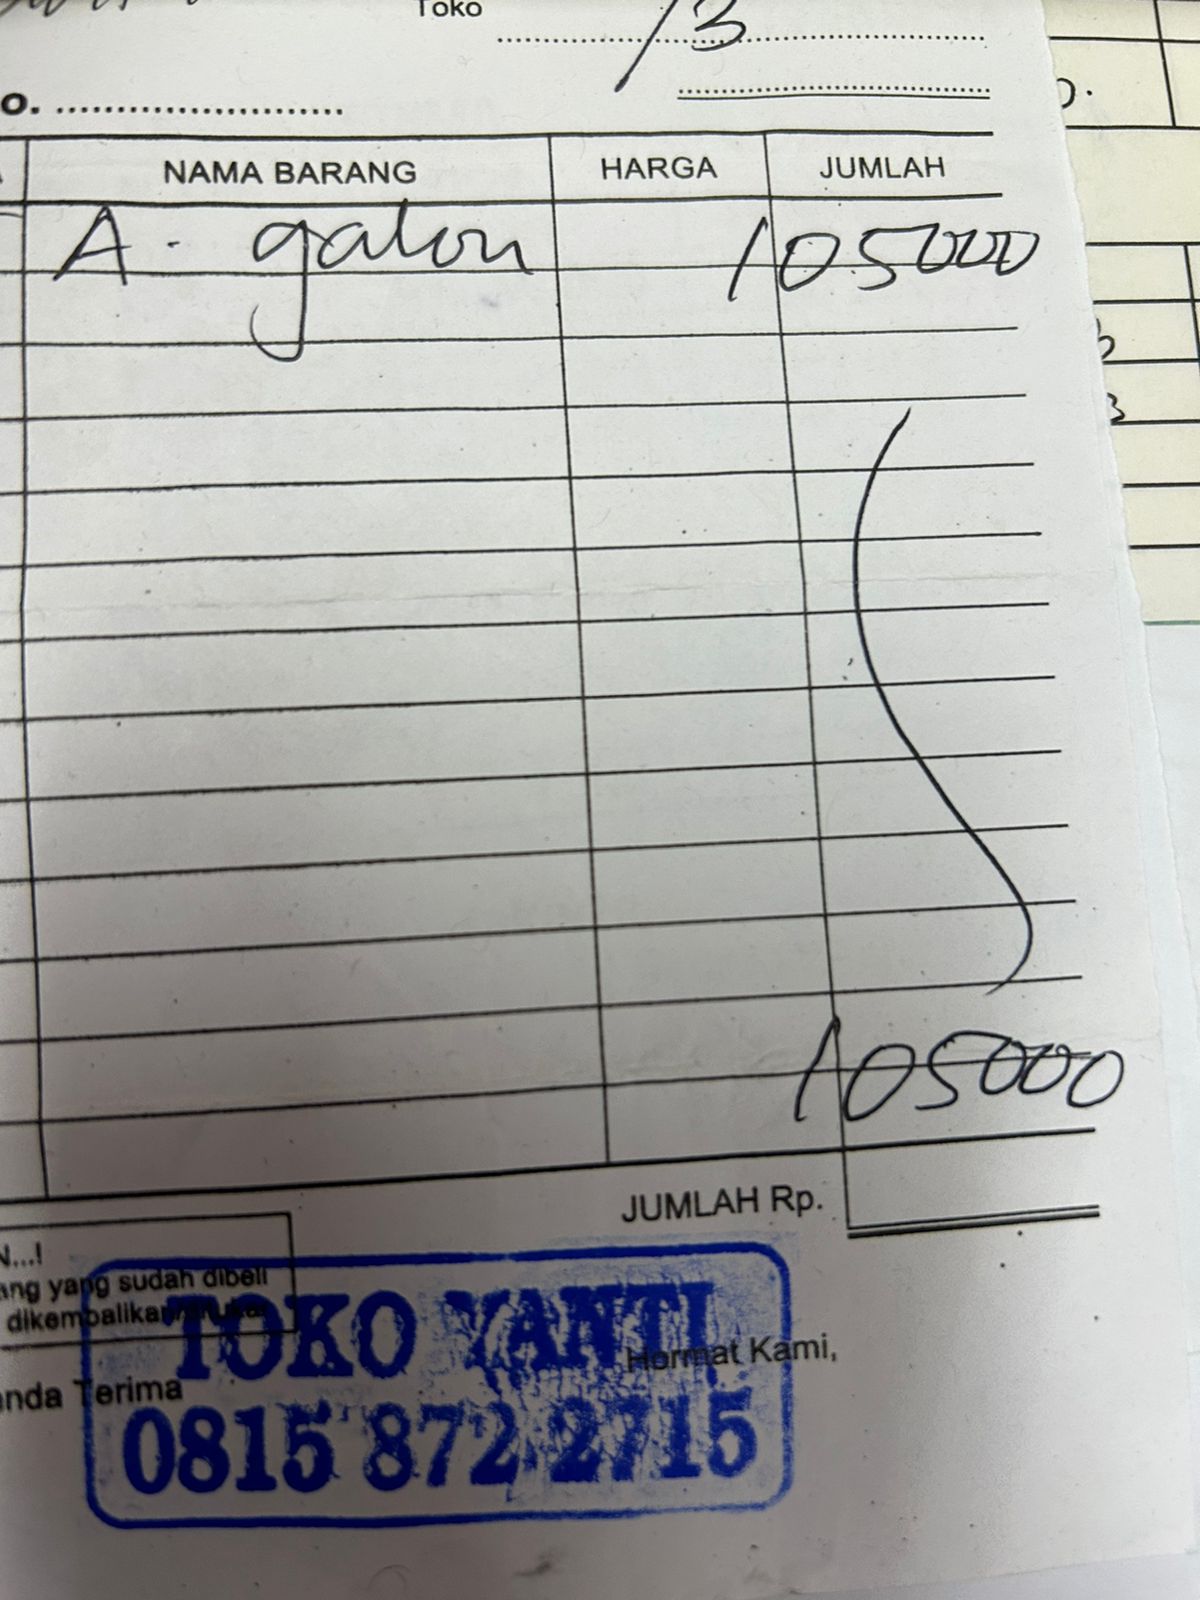 Toko
/3
o. ........................
NAMA BARANG HARGA JUMLAH
A. galon 105000
105000
JUMLAH Rp.
N...!
ang yang sudah dibeli
dikembalikan/tukar
TOKO YANTI
Hormat Kami,
anda Terima
0815 872 2715